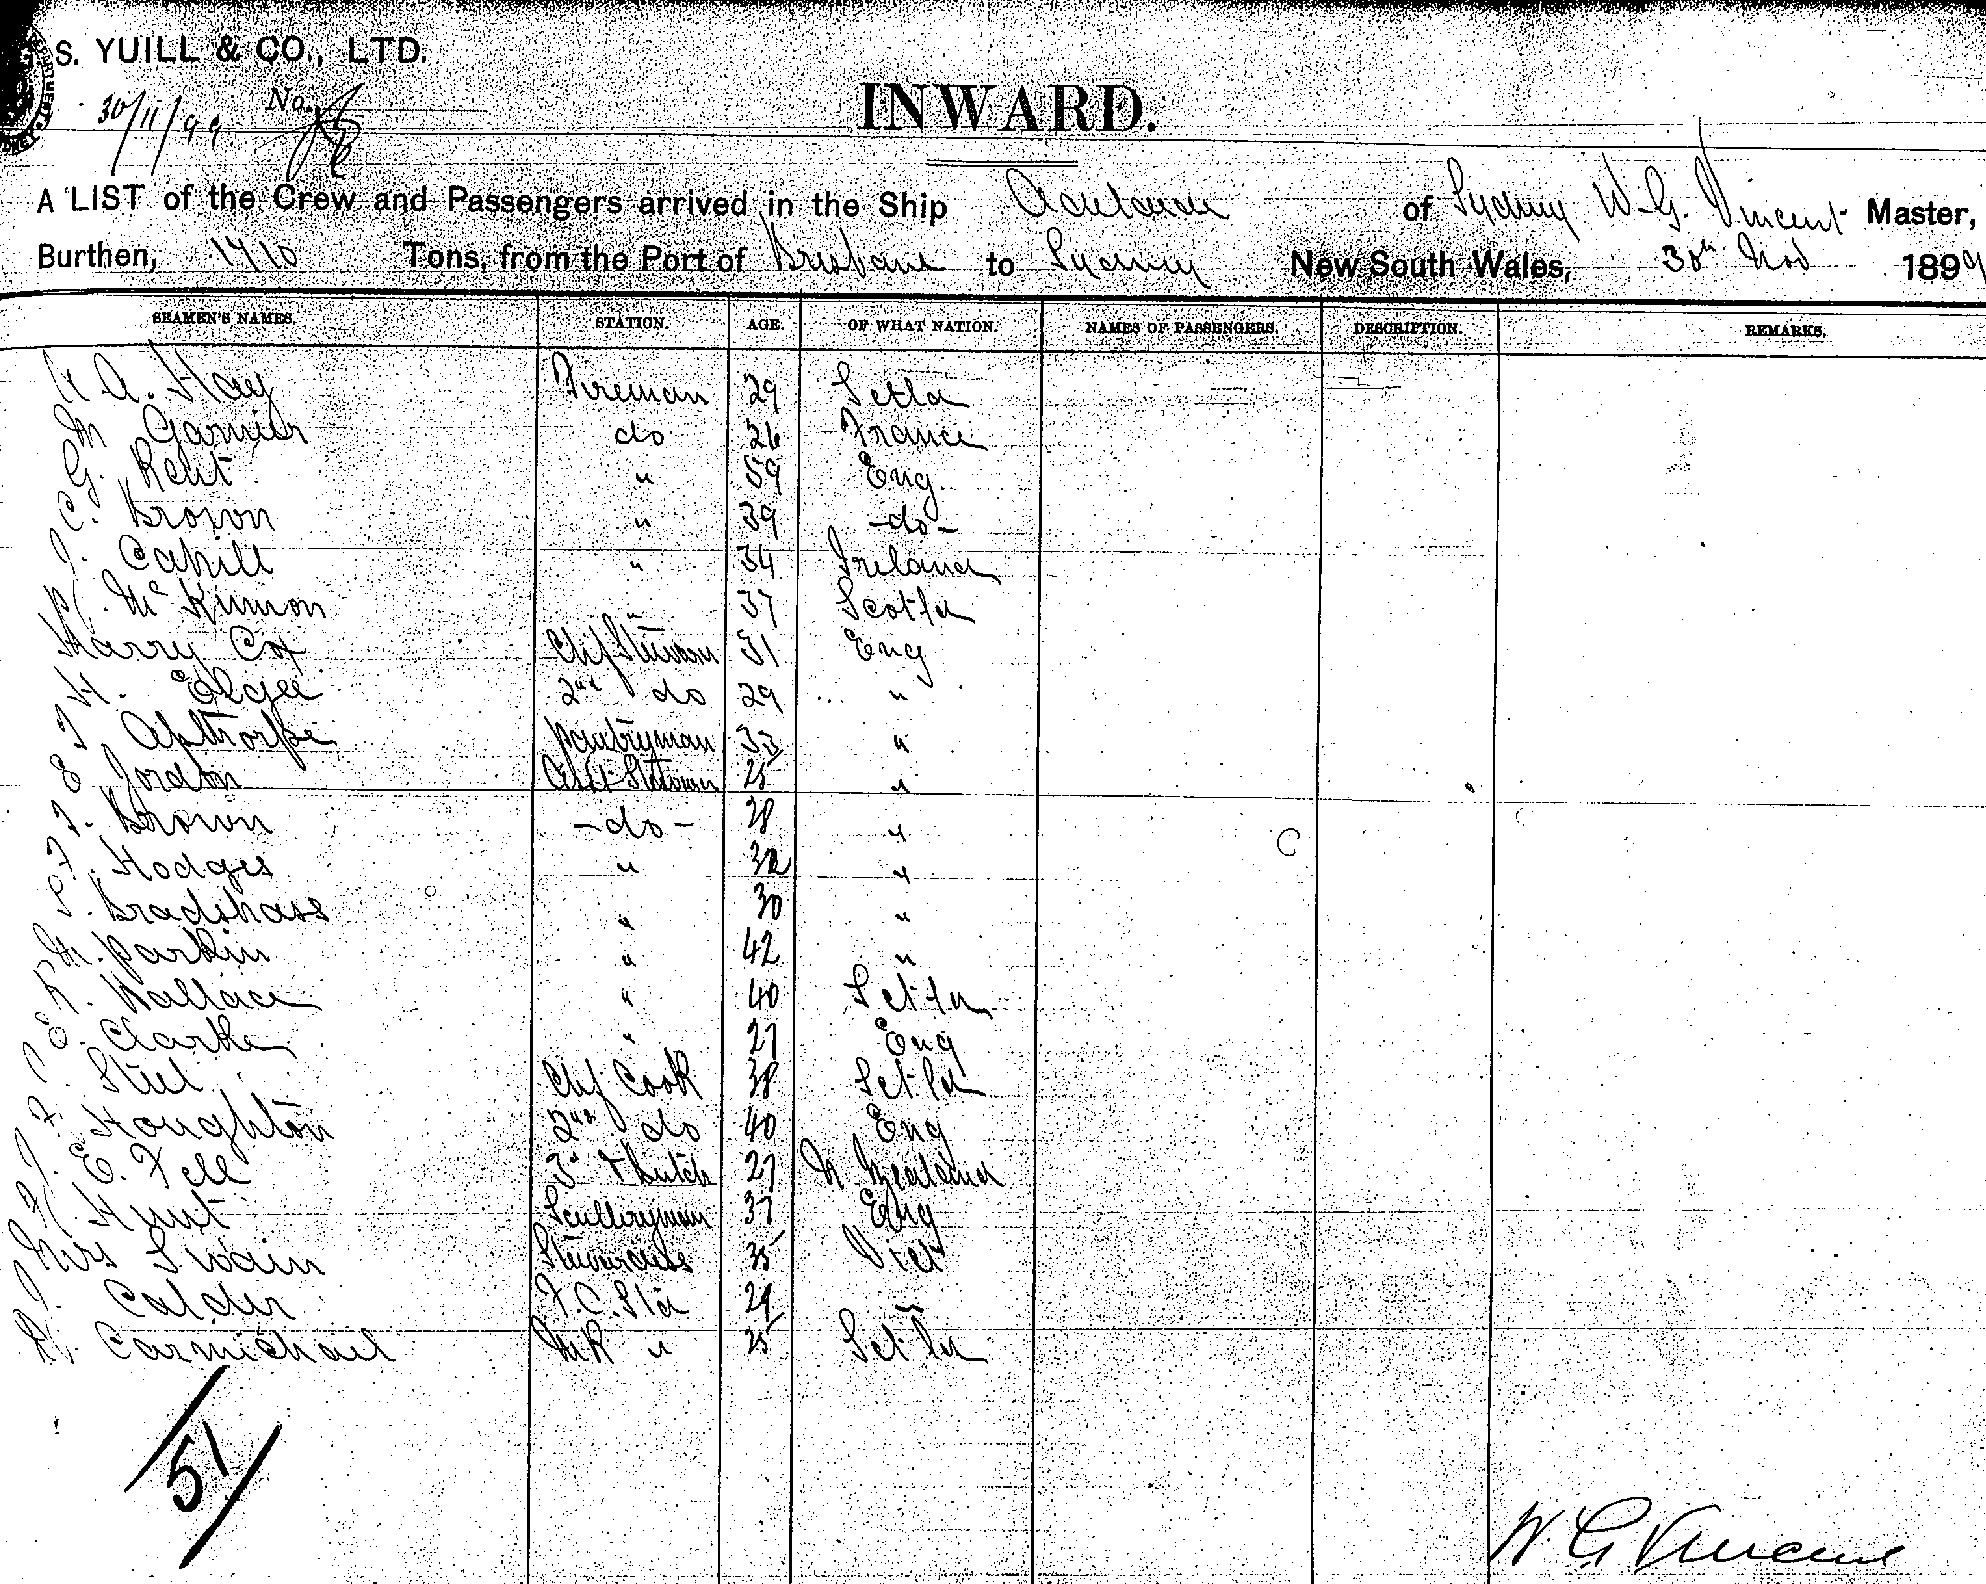 S. YUILL & CO., LTD.
30/11/99 No.
INWARD.
A LIST of the Crew and Passengers arrived in the Ship Adelaide of Sydney W. G. Vincent Master,
Burthen, 1710 Tons, from the Port of Brisbane to Sydney New South Wales, 30th Nov 1899
SEAMEN'S NAMES. STATION. AGE. OF WHAT NATION. NAMES OF PASSENGERS. DESCRIPTION. REMARKS.
A. Hay Fireman 29 Sctld
M Garnier do 26 France
G. Kent " 59 Eng.
C. Brown " 39 -do-
J. Cahill " 34 Ireland
Mc Kinnon 37 Scotld
Harry Cox Chf Steward 51 Eng
H. Edgee 2nd do 29 "
J Apthorpe pantryman 33 "
E Jordon Asst Steward 25 "
J. Brown -do- 28 "
F. Hodges " 32 "
S. Bradshaw " 30 "
M. parkin " 42 "
R. Wallace " 40 Sctld
E. Clarke " 27 Eng
Steel Chf Cook 38 Sctld
F. Houghton 2nd do 40 Eng
J. E. Fell 3d & Butch 27 N Zealand
Hunt Scullryman 37 Eng
Mrs Swain Stewardess 35 Vict
J. Calder F.C. Std 29 "
R. Carmichael MR " 25 Sctld
51
W G Vincent